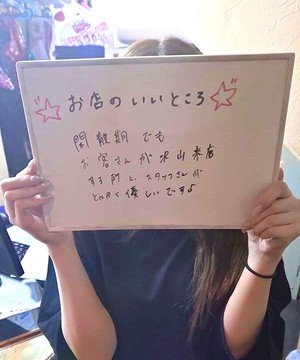 お店のいいところ
閑散期でも
お客さんが沢山来店
する所と、スタッフさんが
とにかく優しいですよ